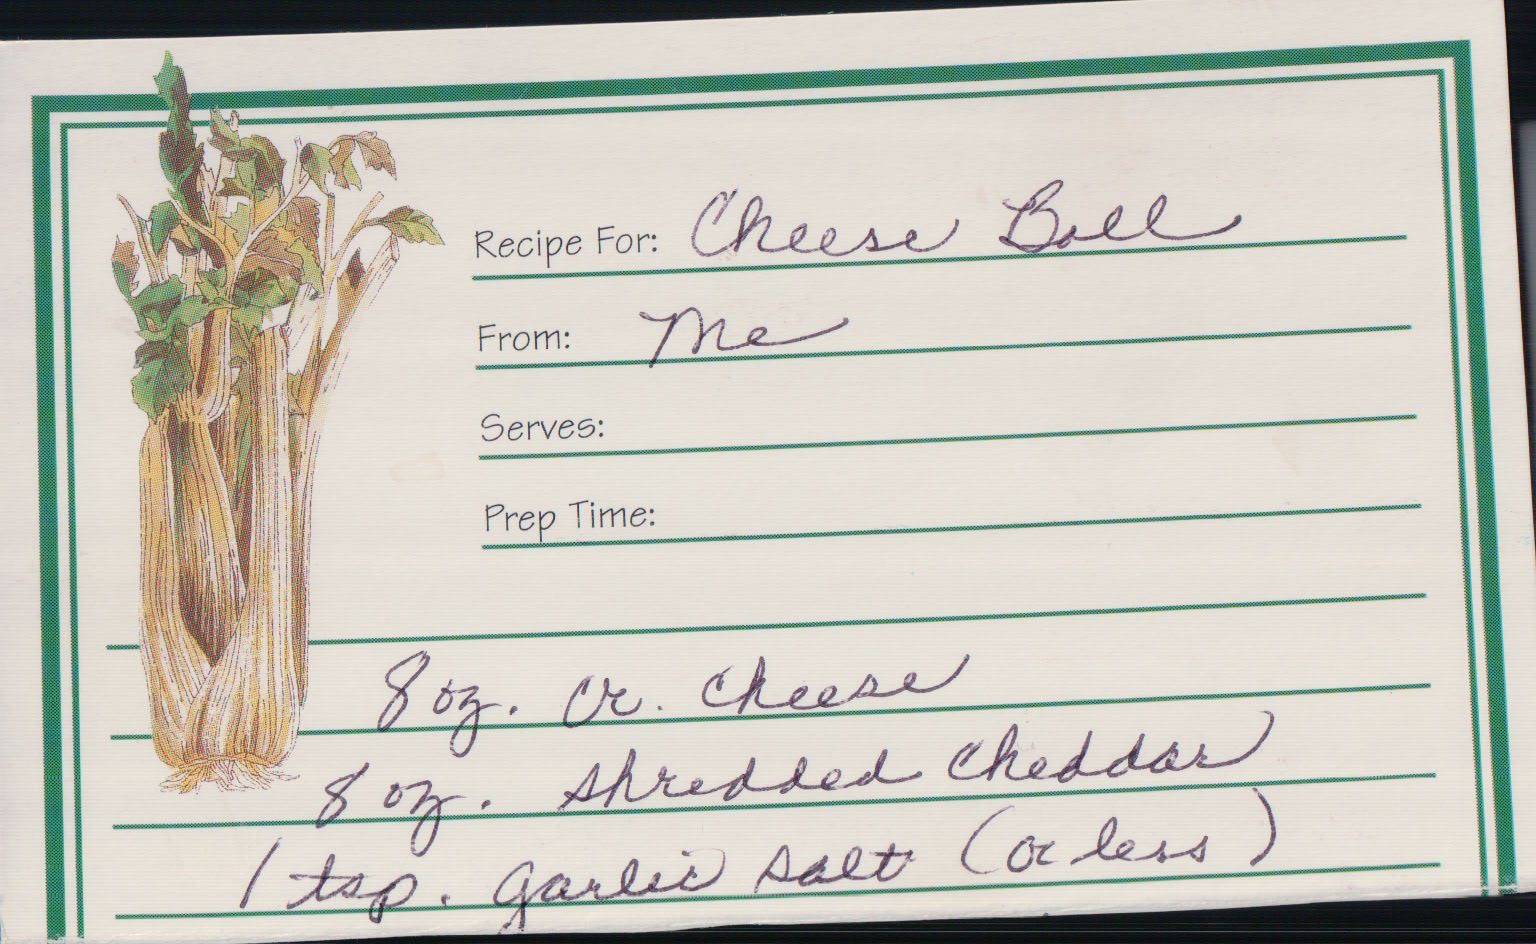 Recipe For: Cheese Ball
From: Me
Serves:
Prep Time:
8 oz. cr. cheese
8 oz. shredded cheddar
1 tsp. garlic salt (or less)